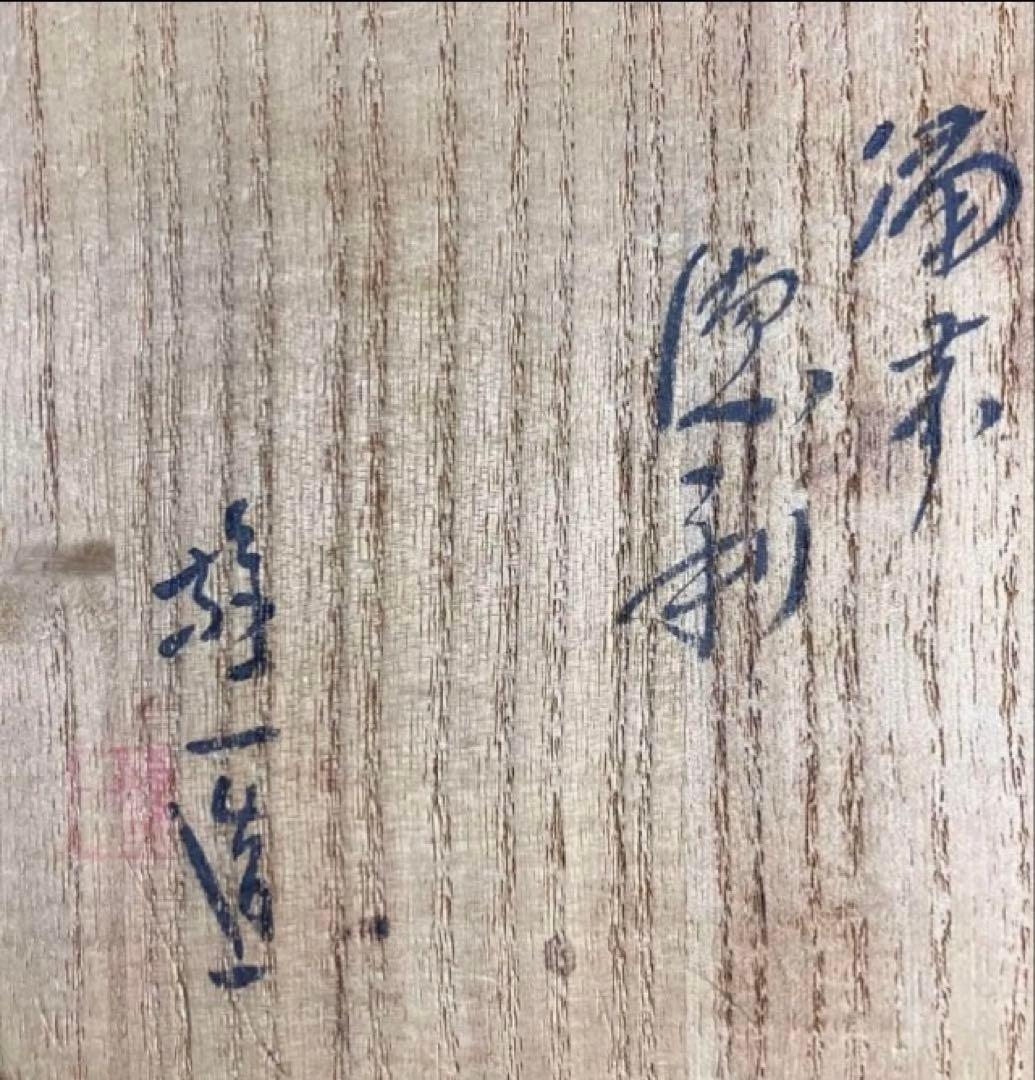 備前
徳利
雄一造